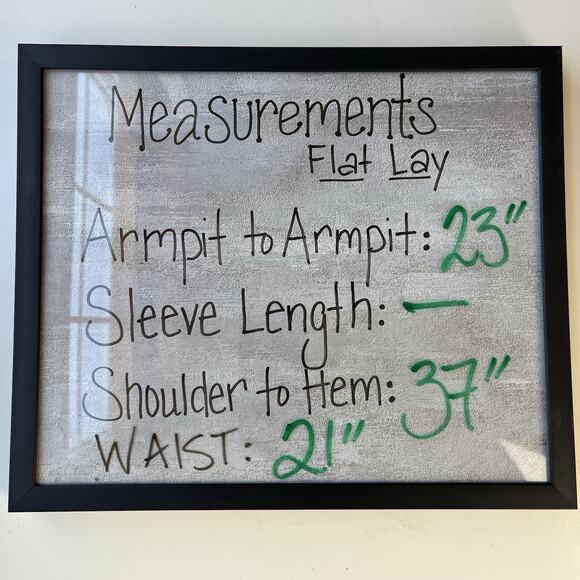 Measurements
Flat Lay
Armpit to Armpit: 23"
Sleeve Length: —
Shoulder to Hem: 37"
WAIST: 21"